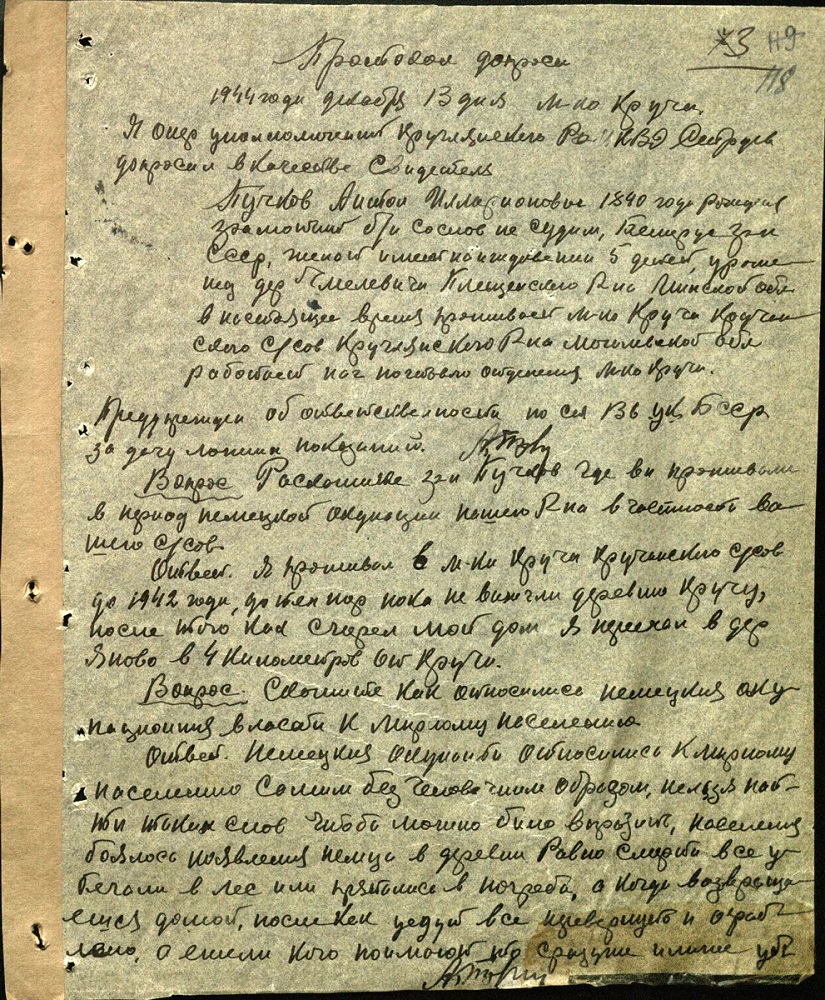 73 119
118
Протокол допроса
1944 года декабря 13 дня м-ко Круча
Я опер уполномоченный Круглянского Ро НКВД
допросил в качестве свидетеля
Пучков Антон Илларионович 1890 года рождения
грамотный б/п сослов не судим, Белорус гр-н
СССР, женат имеет на иждевении 5 детей, уроже-
нец дер Плещенского Р-на Минской обл
в настоящее время проживает м-ко Круча Кручан-
ского с/сов Круглянского Р-на Могилевской обл
работает нач почтового отделения м-ко Круча.
Предупрежден об ответственности по ст 136 УК БССР
за дачу ложных показаний.
Вопрос Расскажите гр-н Пучков где вы проживали
в период немецкой окупации нашего Р-на в частности ва-
шего с/сов
Ответ. Я проживал в м-ко Круча Кручанского с/сов
до 1942 года, до тех пор пока не выжгли деревню Кручу,
после того как сгорел мой дом я переехал в дер
Яново в 4 километров от Кручи.
Вопрос. Скажите как относились немецкия оку-
пационния власти к мирному населению
Ответ. Немецкия окупанты относились к мирному
населению самим безчеловечним образом, нельзя най-
ти таких слов чтобы можно было виразить, население
боялось появления немца в деревни Равно смерти все у-
бегали в лес или прятались в погреба, а когда возвраща-
ешся домой, после как уедут все и ограб-
лено, а ежели кого поймают то сразу же или уб